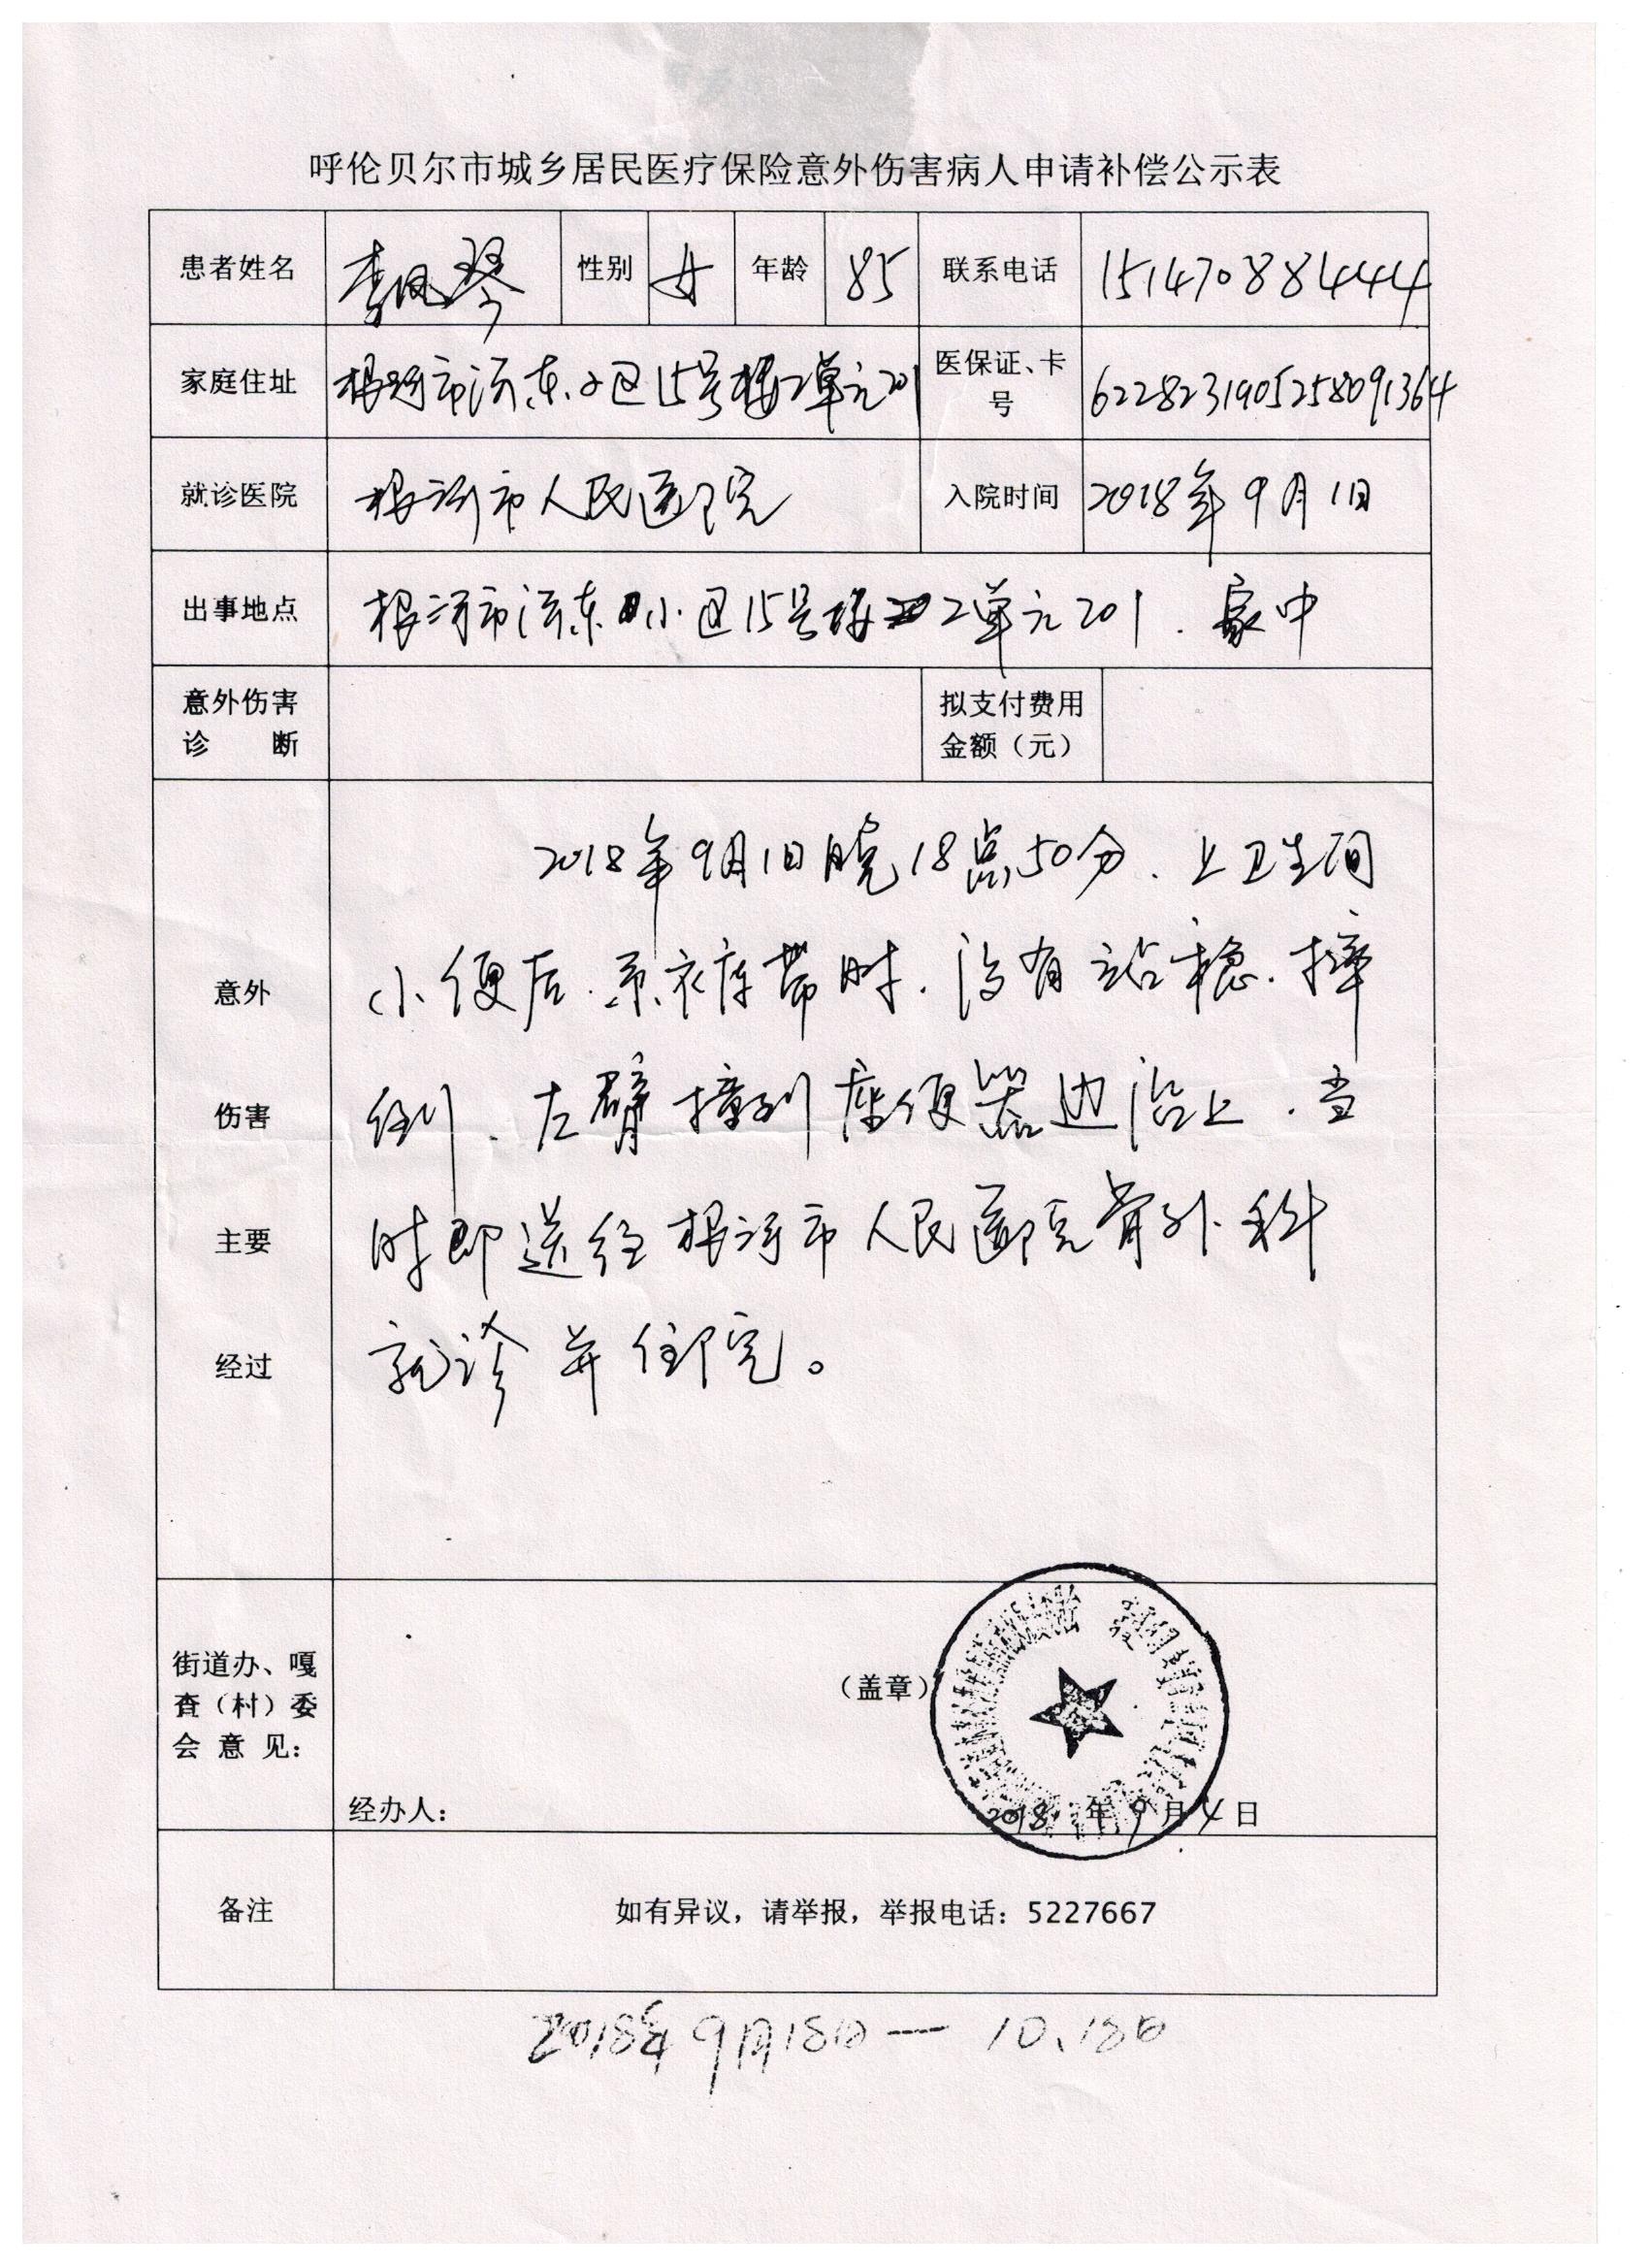 呼伦贝尔市城乡居民医疗保险意外伤害病人申请补偿公示表
患者姓名 李凤琴 性别 女 年龄 85 联系电话 15147088444
家庭住址 根河市河东小区15号楼2单元201 医保证、卡号 6228231905258091364
就诊医院 根河市人民医院 入院时间 2018年9月1日
出事地点 根河市河东小区15号楼2单元201.家中
意外伤害诊断 拟支付费用金额(元)
意外伤害主要经过
2018年9月1日晚18点50分.上卫生间
小便后.系衣裤带时.没有站稳.摔
倒.左臂撞到座便器边沿上.当
时即送往根河市人民医院骨外科
就诊并住院。
街道办、嘎查(村)委会意见:
(盖章)
经办人:
2018年9月4日
备注 如有异议,请举报,举报电话:5227667
2018年9月18日—10.18日